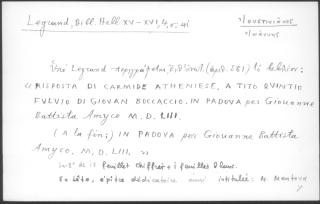 Legrand, Bibl. Hell XV-XVI, 4, σ. 41
Ἰουστινιάνος
Ἰωάννης
Ἐπὸ Legrand περιγράφεται
(ἀριθ. 581) τὸ βιβλίον:
«RISPOSTA DI CARMIDE ATHENIESE, A TITO QUINTIO
FULVIO DI GIOVAN BOCCACCIO. IN PADOVA per Giouanne
Battista Amyco M. D. LIII.
(A la fin:) IN PADOVA per Giouanne Battista
Amyco, M. D. LIII. »
In-8° de 15 feuillet chiffrés + 1 feuillet blanc.
En tête, épître dédicatoire ainsi intitulée: A. Mantova